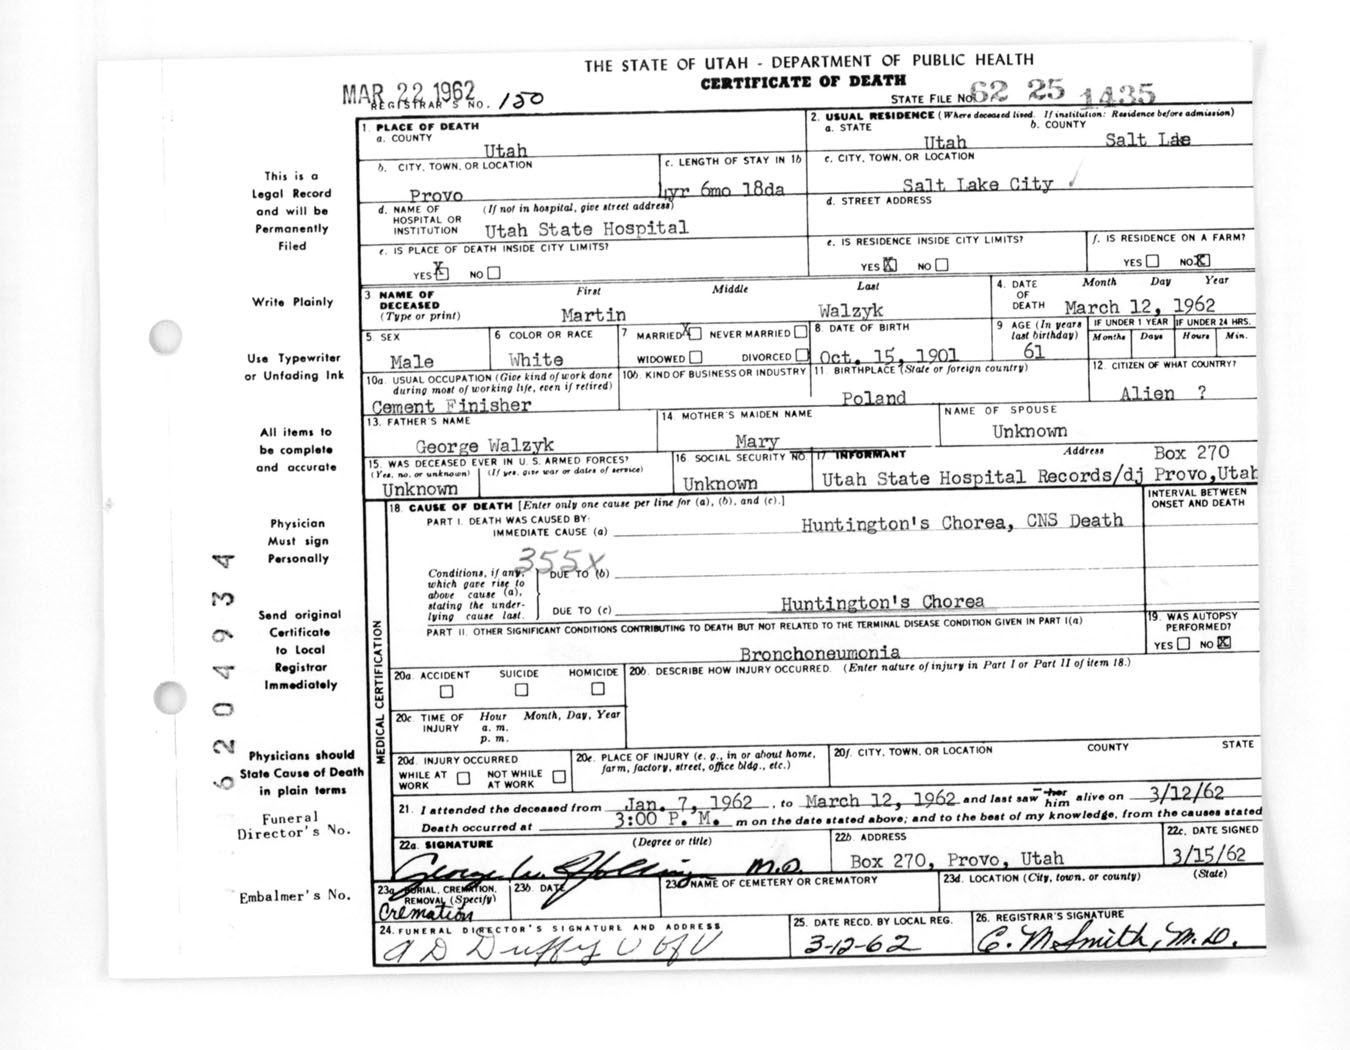 THE STATE OF UTAH - DEPARTMENT OF PUBLIC HEALTH
CERTIFICATE OF DEATH
MAR 22 1962
REGISTRAR'S NO. 150
STATE FILE NO. 62 25 1435
This is a
Legal Record
and will be
Permanently
Filed
Write Plainly
Use Typewriter
or Unfading Ink
All items to
be complete
and accurate
Physician
Must sign
Personally
Send original
Certificate
to Local
Registrar
Immediately
Physicians should
State Cause of Death
in plain terms
Funeral
Director's No.
Embalmer's No.
62 04934
1. PLACE OF DEATH
a. COUNTY
Utah
2. USUAL RESIDENCE (Where deceased lived. If institution: Residence before admission)
a. STATE b. COUNTY
Utah Salt Lae
b. CITY, TOWN, OR LOCATION
Provo
c. LENGTH OF STAY IN 1b
1yr 6mo 18da
c. CITY, TOWN, OR LOCATION
Salt Lake City
d. NAME OF HOSPITAL OR INSTITUTION (If not in hospital, give street address)
Utah State Hospital
d. STREET ADDRESS
e. IS PLACE OF DEATH INSIDE CITY LIMITS?
YES X NO
e. IS RESIDENCE INSIDE CITY LIMITS?
YES X NO
f. IS RESIDENCE ON A FARM?
YES NO X
3 NAME OF DECEASED (Type or print) First Middle Last
Martin Walzyk
4. DATE OF DEATH Month Day Year
March 12, 1962
5. SEX
Male
6 COLOR OR RACE
White
7 MARRIED X NEVER MARRIED
WIDOWED DIVORCED
8. DATE OF BIRTH
Oct. 15, 1901
9 AGE (In years last birthday)
61
IF UNDER 1 YEAR IF UNDER 24 HRS.
Months Days Hours Min.
10a. USUAL OCCUPATION (Give kind of work done during most of working life, even if retired)
Cement Finisher
10b. KIND OF BUSINESS OR INDUSTRY
11. BIRTHPLACE (State or foreign country)
Poland
12. CITIZEN OF WHAT COUNTRY?
Alien ?
13. FATHER'S NAME
George Walzyk
14. MOTHER'S MAIDEN NAME
Mary
NAME OF SPOUSE
Unknown
15. WAS DECEASED EVER IN U. S. ARMED FORCES?
(Yes, no, or unknown) (If yes, give war or dates of service)
Unknown
16 SOCIAL SECURITY NO.
Unknown
17 INFORMANT Address
Box 270
Utah State Hospital Records/dj Provo,Utah
18. CAUSE OF DEATH [Enter only one cause per line for (a), (b), and (c).]
INTERVAL BETWEEN ONSET AND DEATH
MEDICAL CERTIFICATION
PART I. DEATH WAS CAUSED BY:
IMMEDIATE CAUSE (a) Huntington's Chorea, CNS Death
355X
Conditions, if any, which gave rise to above cause (a), stating the underlying cause last.
DUE TO (b)
DUE TO (c) Huntington's Chorea
PART II. OTHER SIGNIFICANT CONDITIONS CONTRIBUTING TO DEATH BUT NOT RELATED TO THE TERMINAL DISEASE CONDITION GIVEN IN PART I(a)
Bronchoneumonia
19. WAS AUTOPSY PERFORMED?
YES NO X
20a. ACCIDENT SUICIDE HOMICIDE
20b. DESCRIBE HOW INJURY OCCURRED. (Enter nature of injury in Part I or Part II of item 18.)
20c. TIME OF INJURY Hour Month, Day, Year
a. m.
p. m.
20d. INJURY OCCURRED
WHILE AT WORK NOT WHILE AT WORK
20e. PLACE OF INJURY (e. g., in or about home, farm, factory, street, office bldg., etc.)
20f. CITY, TOWN, OR LOCATION COUNTY STATE
21. I attended the deceased from Jan. 7, 1962, to March 12, 1962 and last saw her him alive on 3/12/62
Death occurred at 3:00 P. M. m on the date stated above; and to the best of my knowledge, from the causes stated
22a. SIGNATURE (Degree or title)
George W. M.D.
22b. ADDRESS
Box 270, Provo, Utah
22c. DATE SIGNED
3/15/62
23a. BURIAL, CREMATION, REMOVAL (Specify)
Cremation
23b. DATE
23c NAME OF CEMETERY OR CREMATORY
23d. LOCATION (City, town, or county) (State)
24. FUNERAL DIRECTOR'S SIGNATURE AND ADDRESS
A D Duffy U of U
25. DATE RECD. BY LOCAL REG.
3-12-62
26. REGISTRAR'S SIGNATURE
C. M Smith, M.D.